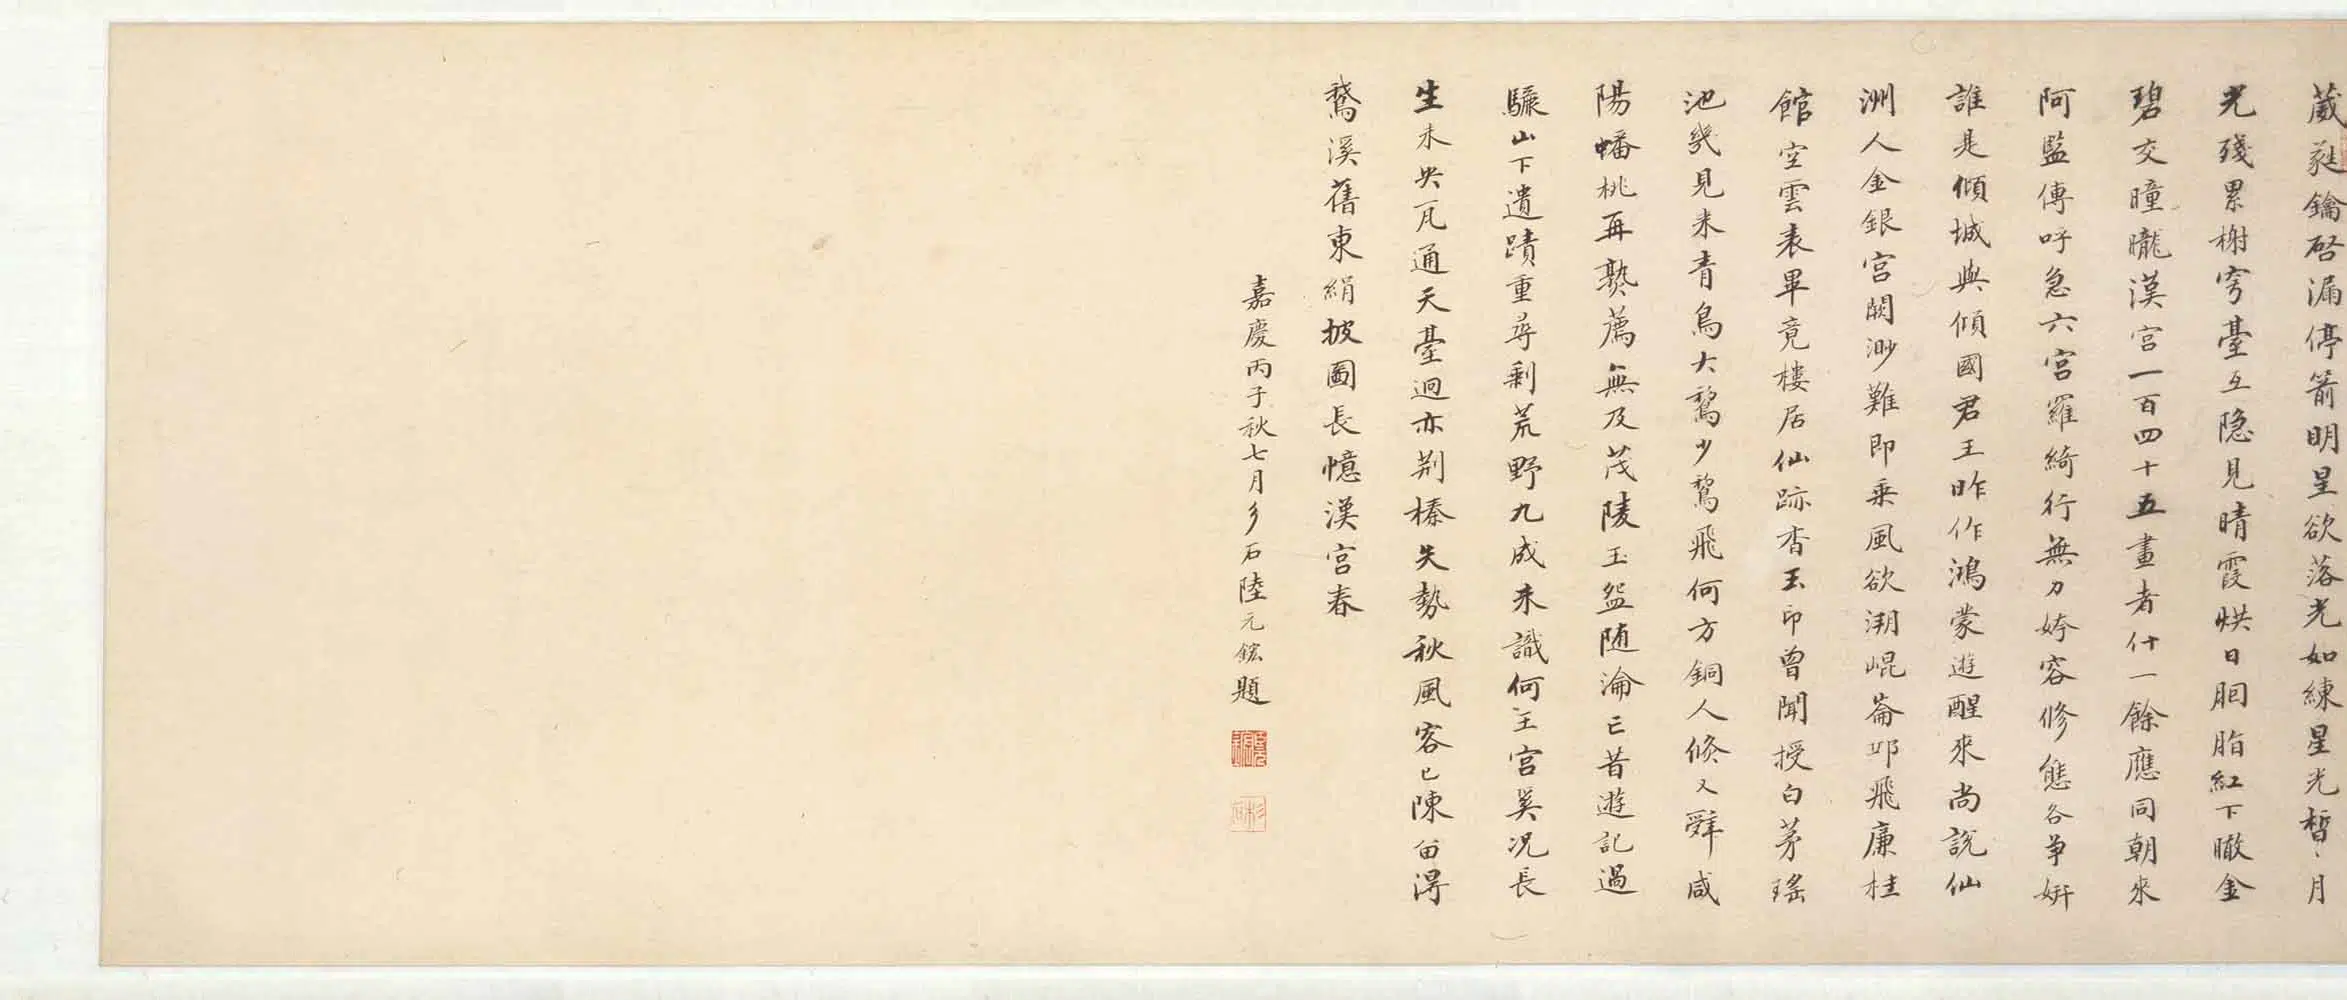 蕤鑰啓漏停箭明星欲落光如練星光皙〻月
光殘累榭穹臺互隐見晴霞烘日胭脂紅下瞰金
碧交曈曨漢宮一百四十五畫者什一餘應同朝來
阿監傳呼急六宮羅綺行無力姱容修態各争妍
誰是傾城與傾國君王昨作鴻蒙遊醒來尚說仙
洲人金銀宮闕渺難即乘風欲溯崐崙邱飛廉桂
館空雲表畢竟樓居仙跡杳玉印曾聞授白茅瑤
池幾見来青鳥大鵹少鵹飛何方銅人倏又辭咸
陽蟠桃再熟薦無及茂陵玉盌随淪亡昔遊記過
驪山下遺蹟重尋剩荒野九成未識何王宮奚况長
生未央瓦通天臺迥亦荆榛失勢秋風客已陳留得
鵞溪舊東絹披圖長憶漢宮春
嘉慶丙子秋七月彡石陸元鋐題